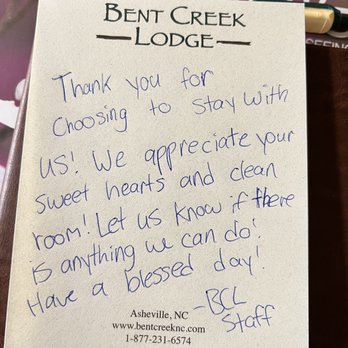 BENT CREEK
LODGE
Thank you for
Choosing to stay with
us! We appreciate your
sweet hearts and clean
room! Let us know if there
is anything we can do!
Have a blessed day!
-BCL
Staff
Asheville, NC
www.bentcreeknc.com
1-877-231-6574